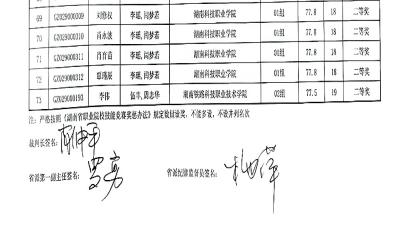 69 G2029000309 刘修权 李瑶, 闫梦若 湖南科技职业学院 01组 77.8 18 二等奖
70 G2029000310 肖永波 李瑶, 闫梦若 湖南科技职业学院 02组 77.8 18 二等奖
71 G2029000311 肖育苗 李瑶, 闫梦若 湖南科技职业学院 03组 77.8 18 二等奖
72 G2029000312 李瑶, 闫梦若 湖南科技职业学院 04组 77.8 18 二等奖
73 G2029000193 李伟 伍丰, 周志华 湖南铁路科技职业技术学院 02组 77.5 19 二等奖
注: 严格按照《湖南省职业院校技能竞赛奖惩办法》规定数额设奖, 不能多设, 不设并列名次
裁判长签名:
省派第一副主任签名:
省派纪律监督员签名: